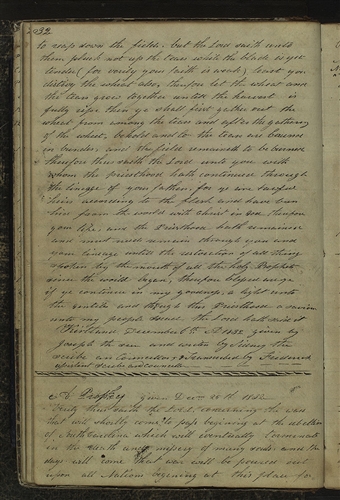 32
to reap down the fields. but the Lord saith unto
them pluck not up the tares while the blade is yet
tender (for verily your faith is weak) least you
destroy the wheat also, therefore let the wheat and
the tares grow together untill the harvest is
fully ripe then ye shall first gather out the
wheat from among the tares and after the gathering
of the wheat, behold and lo the tares are bound
in bundles, and the field remaineth to be burned
therefore thus saith the Lord unto you with
whom the priesthood hath continued through
the lineage of your fathers. for ye are lawful
heirs according to the flesh and have been
hid from the world with Christ in God, therefore
your life, and the Priesthood hath remained
and must needs remain through you and
your lineage untill the restoration of all things
spoken by the mouth of all the holy Prophets
since the world began, therefore blessed are ye
if ye continue in my goodness, a light unto
the gentiles and through this Priesthood a saviour
unto my people Israel. the Lord hath said it
Kirtland December 6th AD 1832 given by
Joseph the seer and written by Sidney the
scribe an Connsellor, & Transcribed by Frederick
assistant scribe and counsellor
A Prophecy given Decem 25th 1832
Verily thus saith the Lord concerning the wars
that will shortly come to pass beginning at the rebellion
of South Carolina which will eventually terminate
in the death and misery of many souls and the
days will come that war will be poured out
upon all Nations beginning at this place for